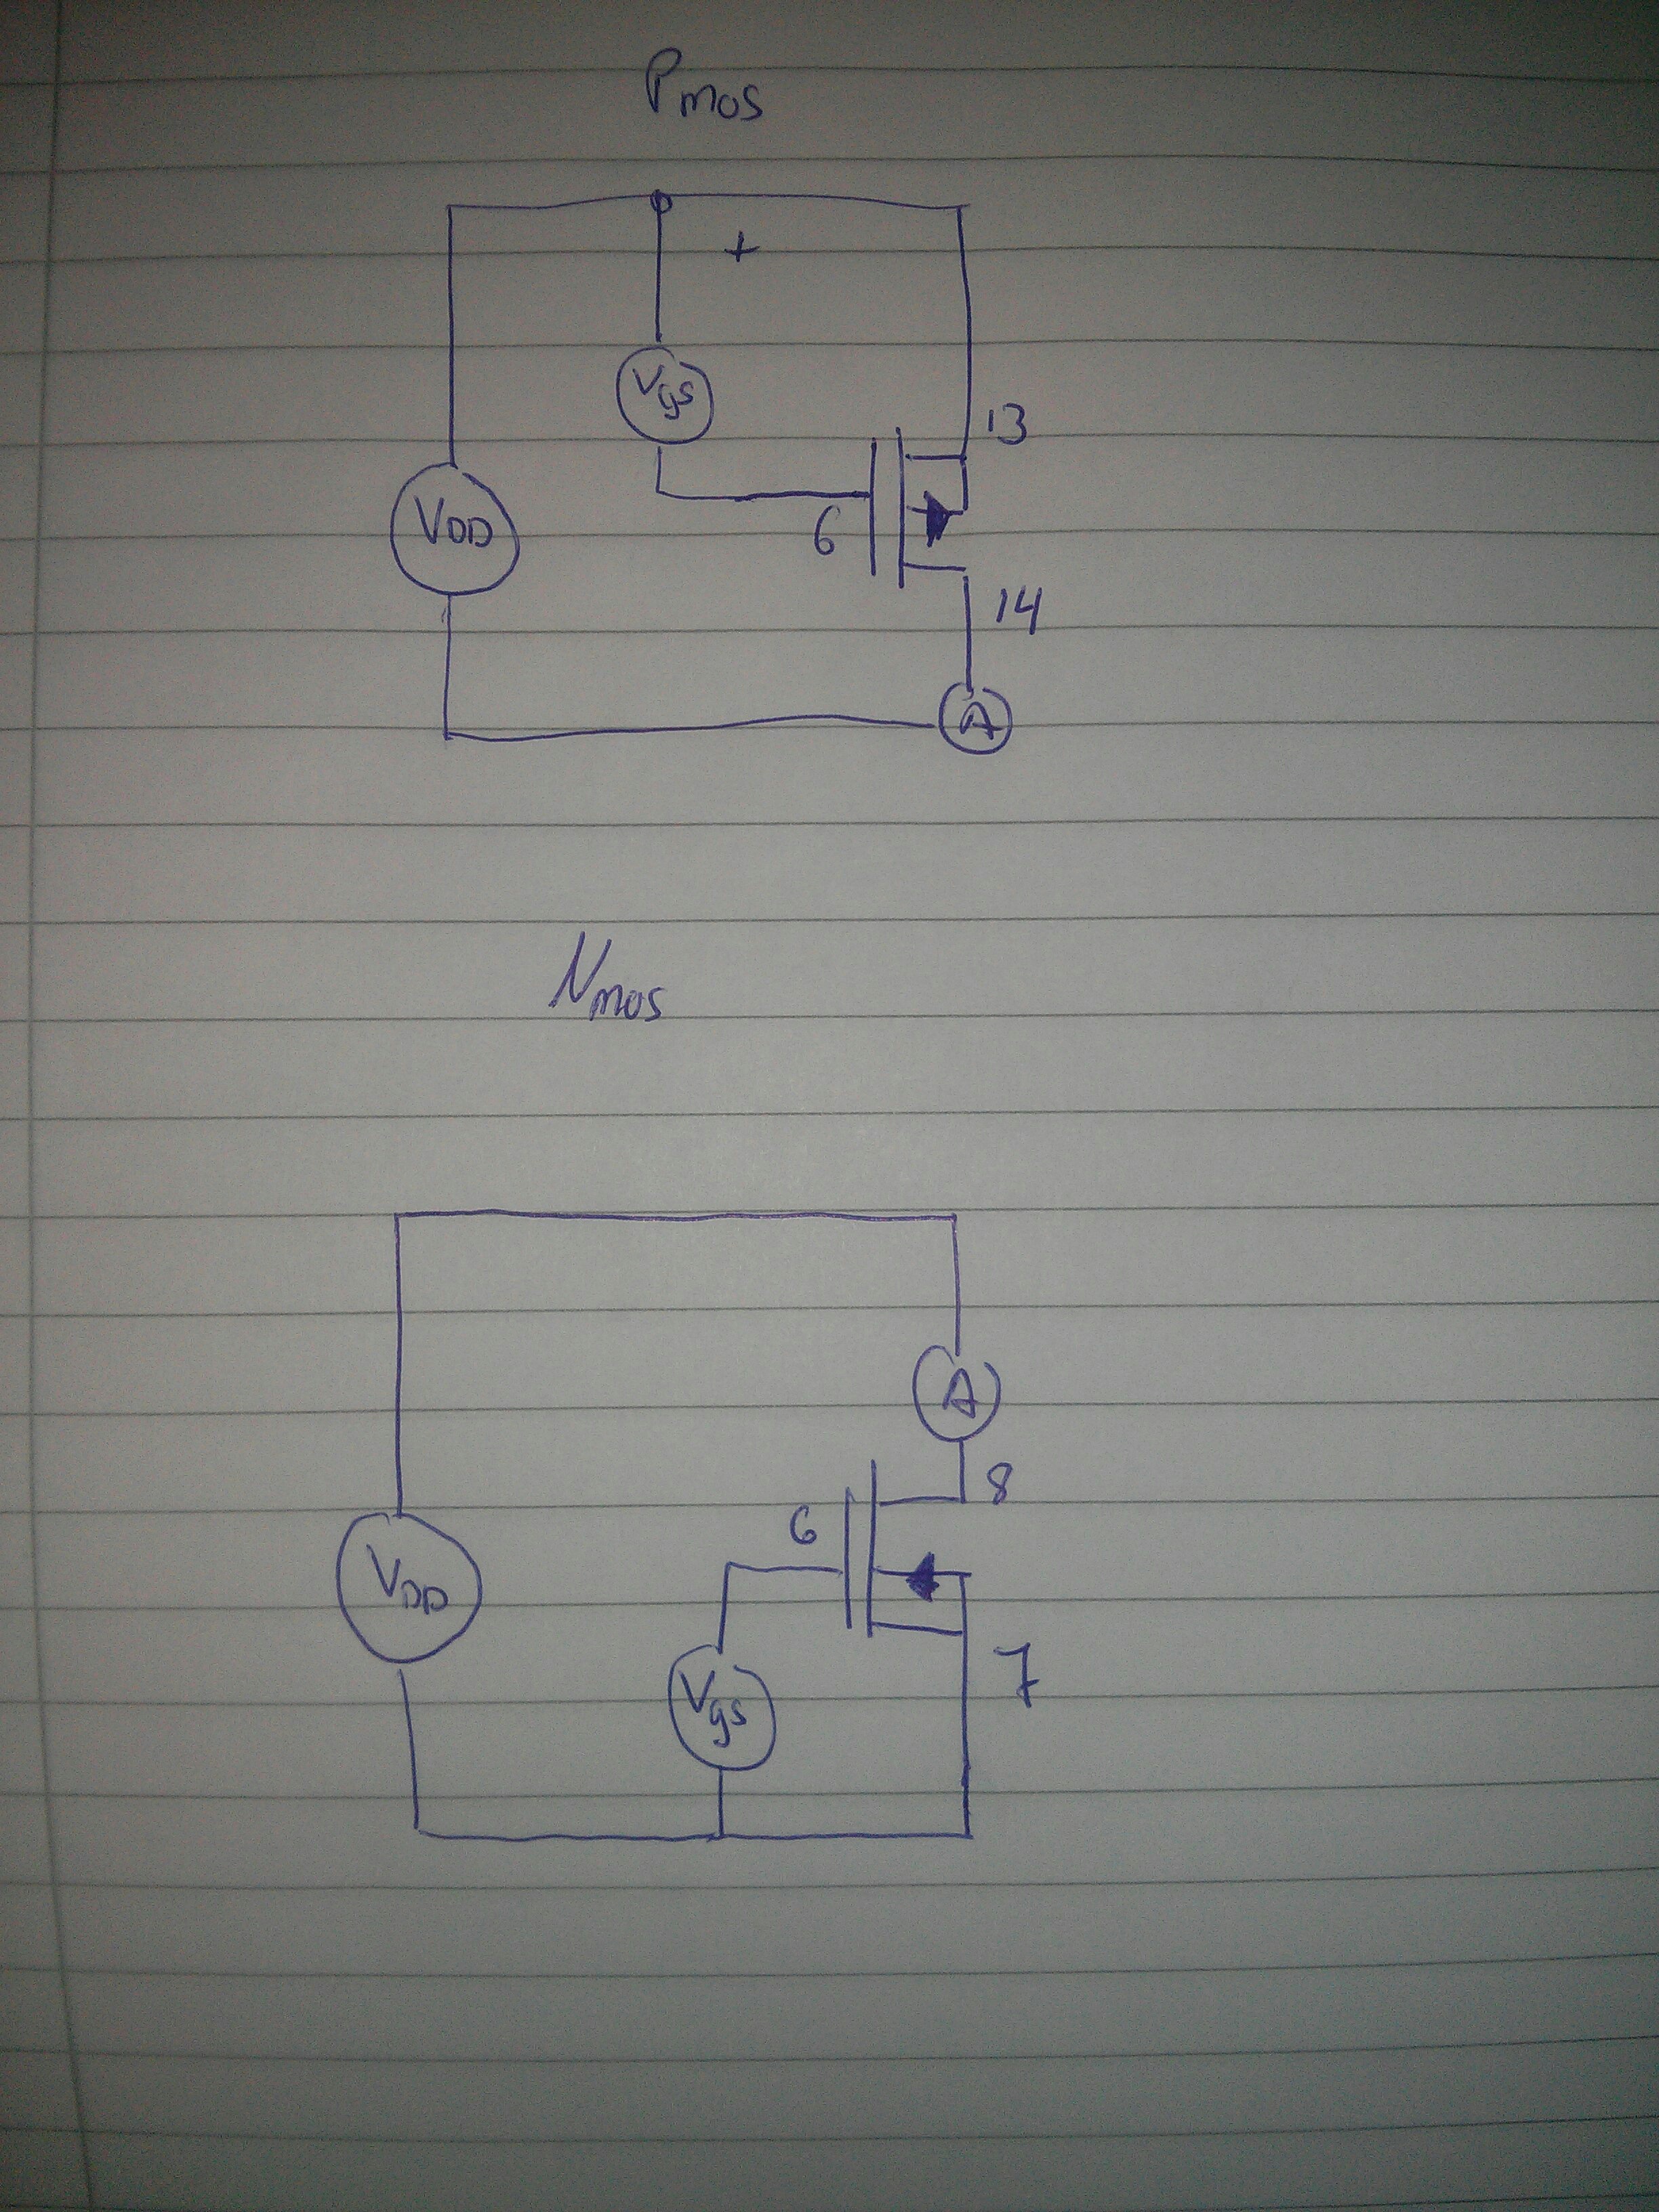 Pmos
+
Vgs
13
VDD
6
14
A
Nmos
A
8
6
VDD
7
Vgs